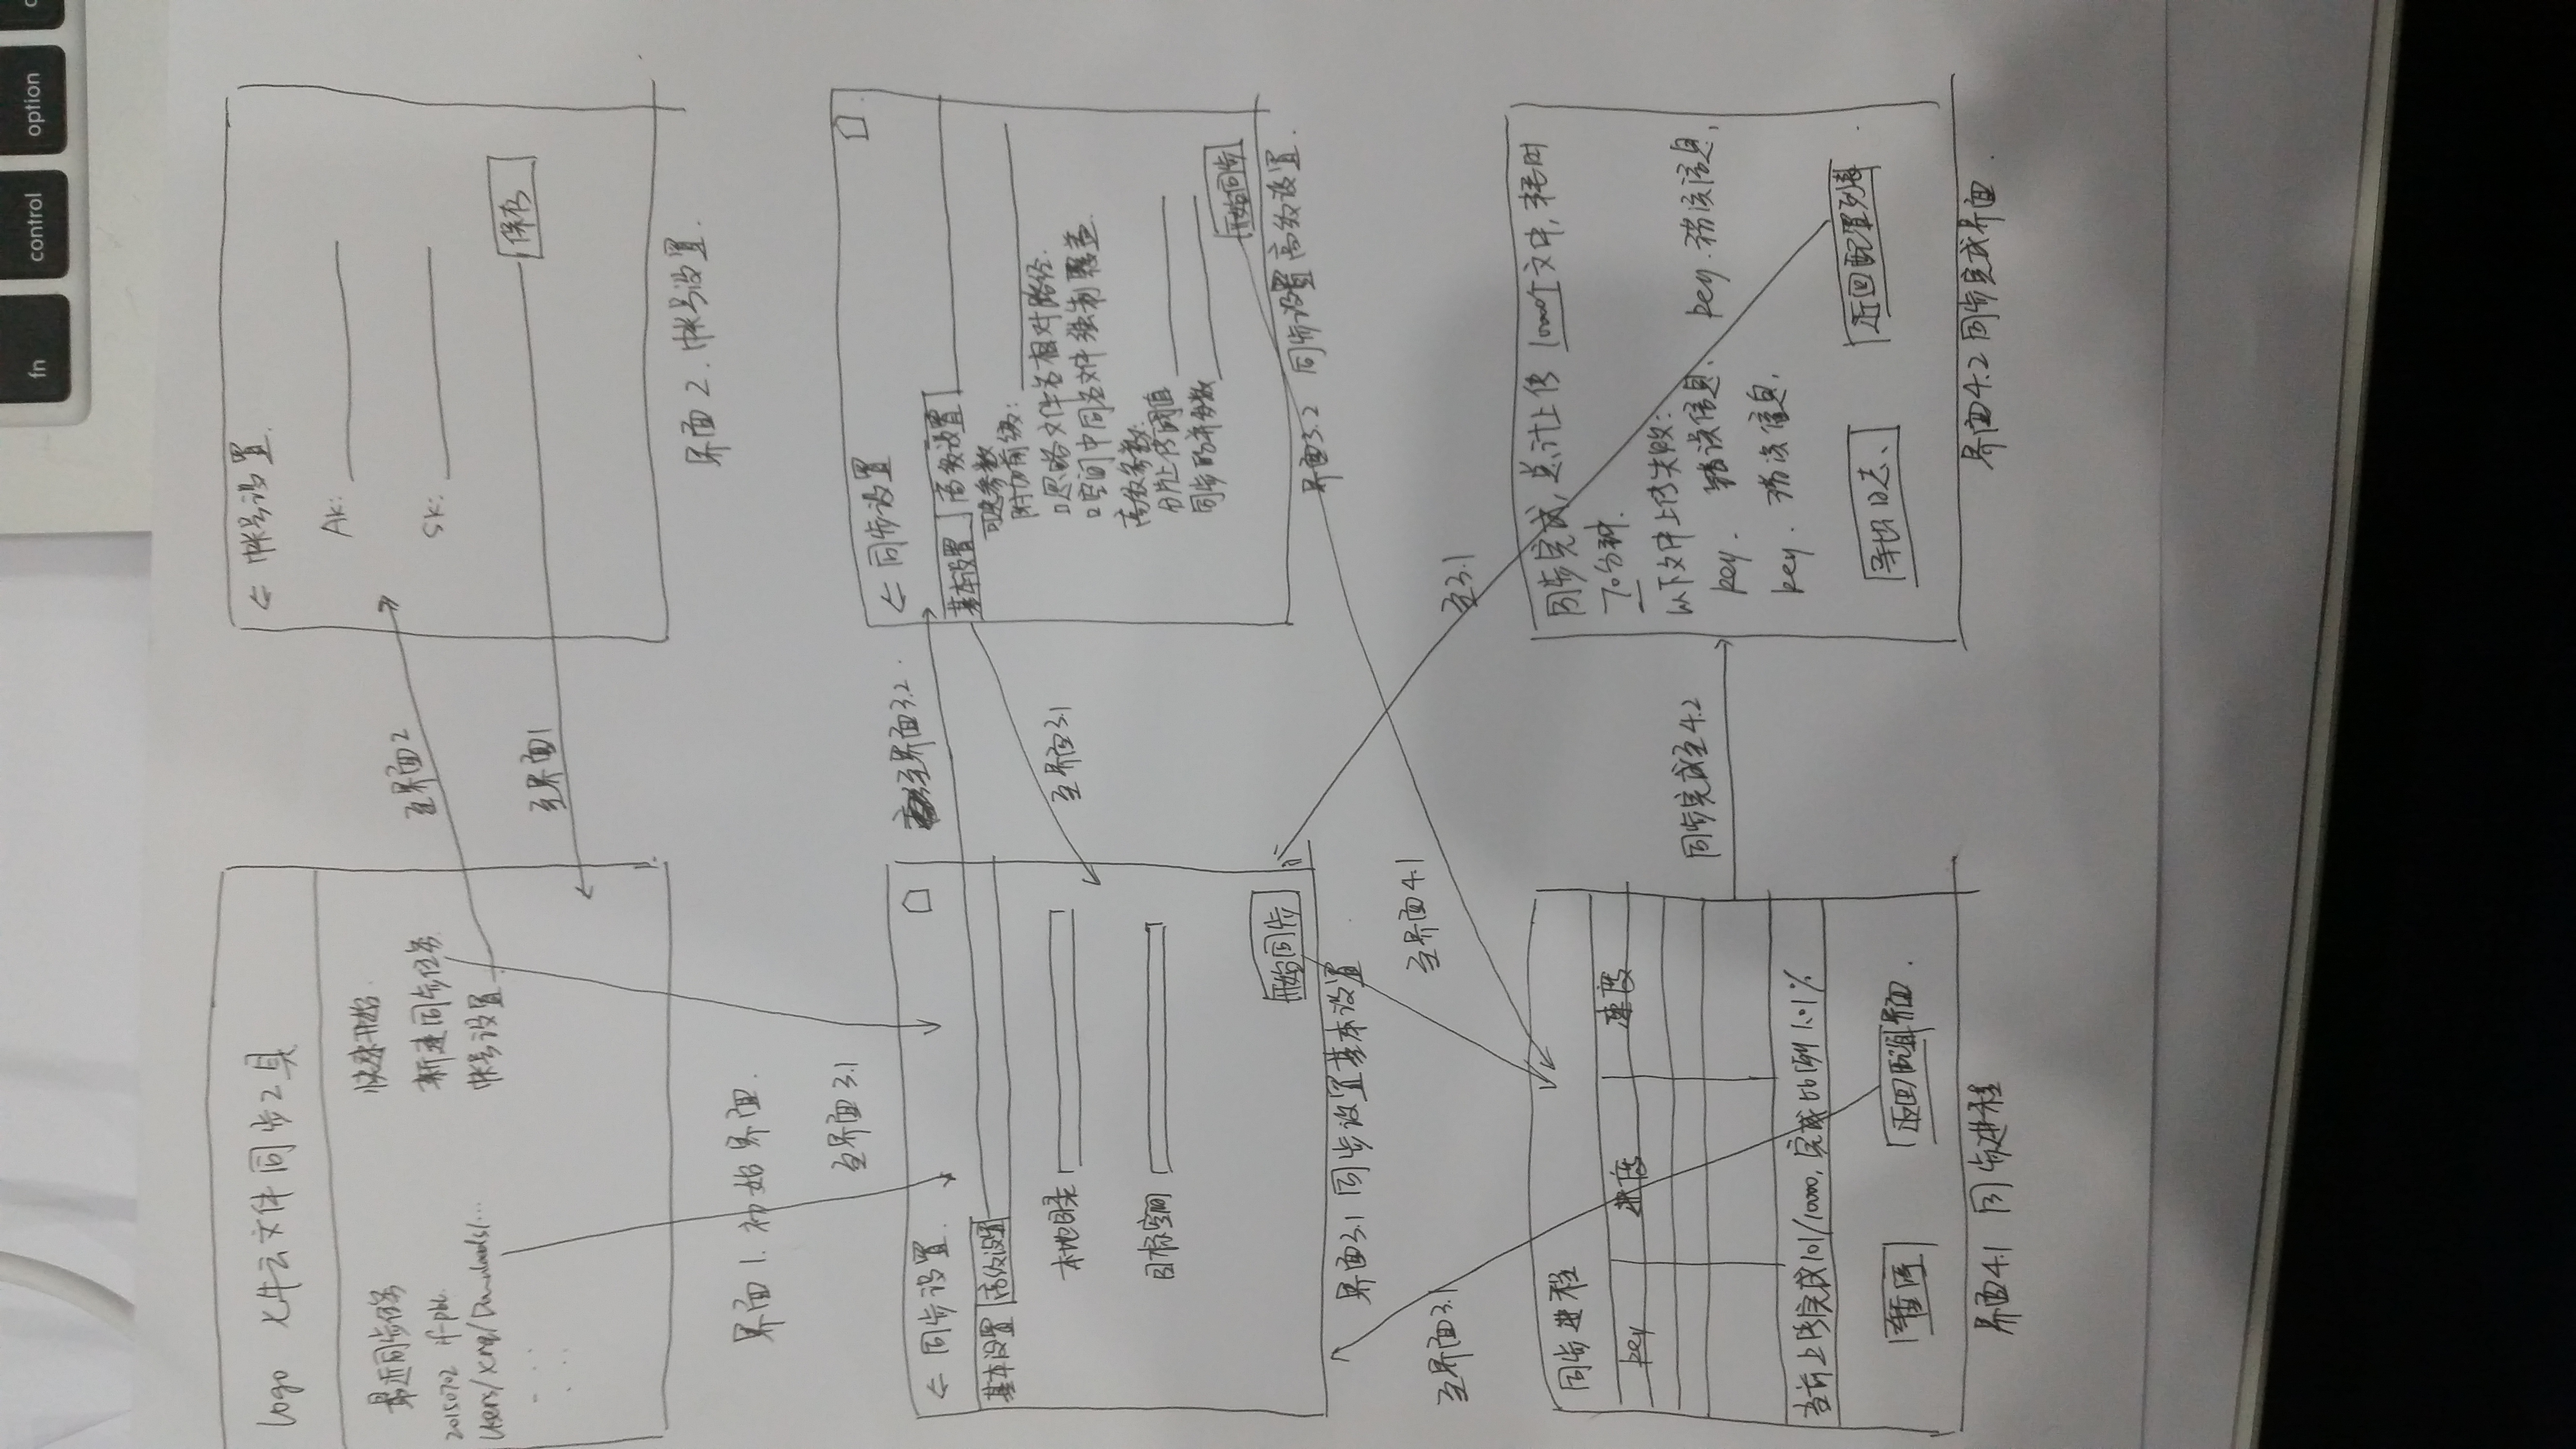 fn control option
logo 七牛云文件同步工具
最近同步任务
20150702 if-pbl
Users/xmq/Downloads/...
快速开始
新建同步任务
帐号设置
至界面2
至界面1
← 帐号设置
AK:
SK:
保存
界面1. 初始界面.
界面2. 帐号设置.
至界面3.1
← 同步设置.
基本设置 高级设置
本地目录
目标空间
开始同步
界面3.1 同步设置基本设置
至界面3.2.
至界面3.1
← 同步设置
基本设置 高级设置
可选参数
附加前缀:
□忽略文件名相对路径.
□空间中同名文件强制覆盖.
高级参数:
分片上传阈值
同步的并发数
开始同步
界面3.2 同步设置高级设置.
至界面3.1
至界面4.1
至3.1
同步进程
key 进度 速度
当前上传完成101/10000, 完成比例1.01%
暂停 返回配置界面.
界面4.1 同步进程
同步完成至4.2
同步完成, 总计上传 10000个文件, 耗时
70分钟.
以下文件上传失败:
key. 错误信息. key. 错误信息.
key. 错误信息.
导出日志. 返回配置列表
界面4.2 同步完成界面.